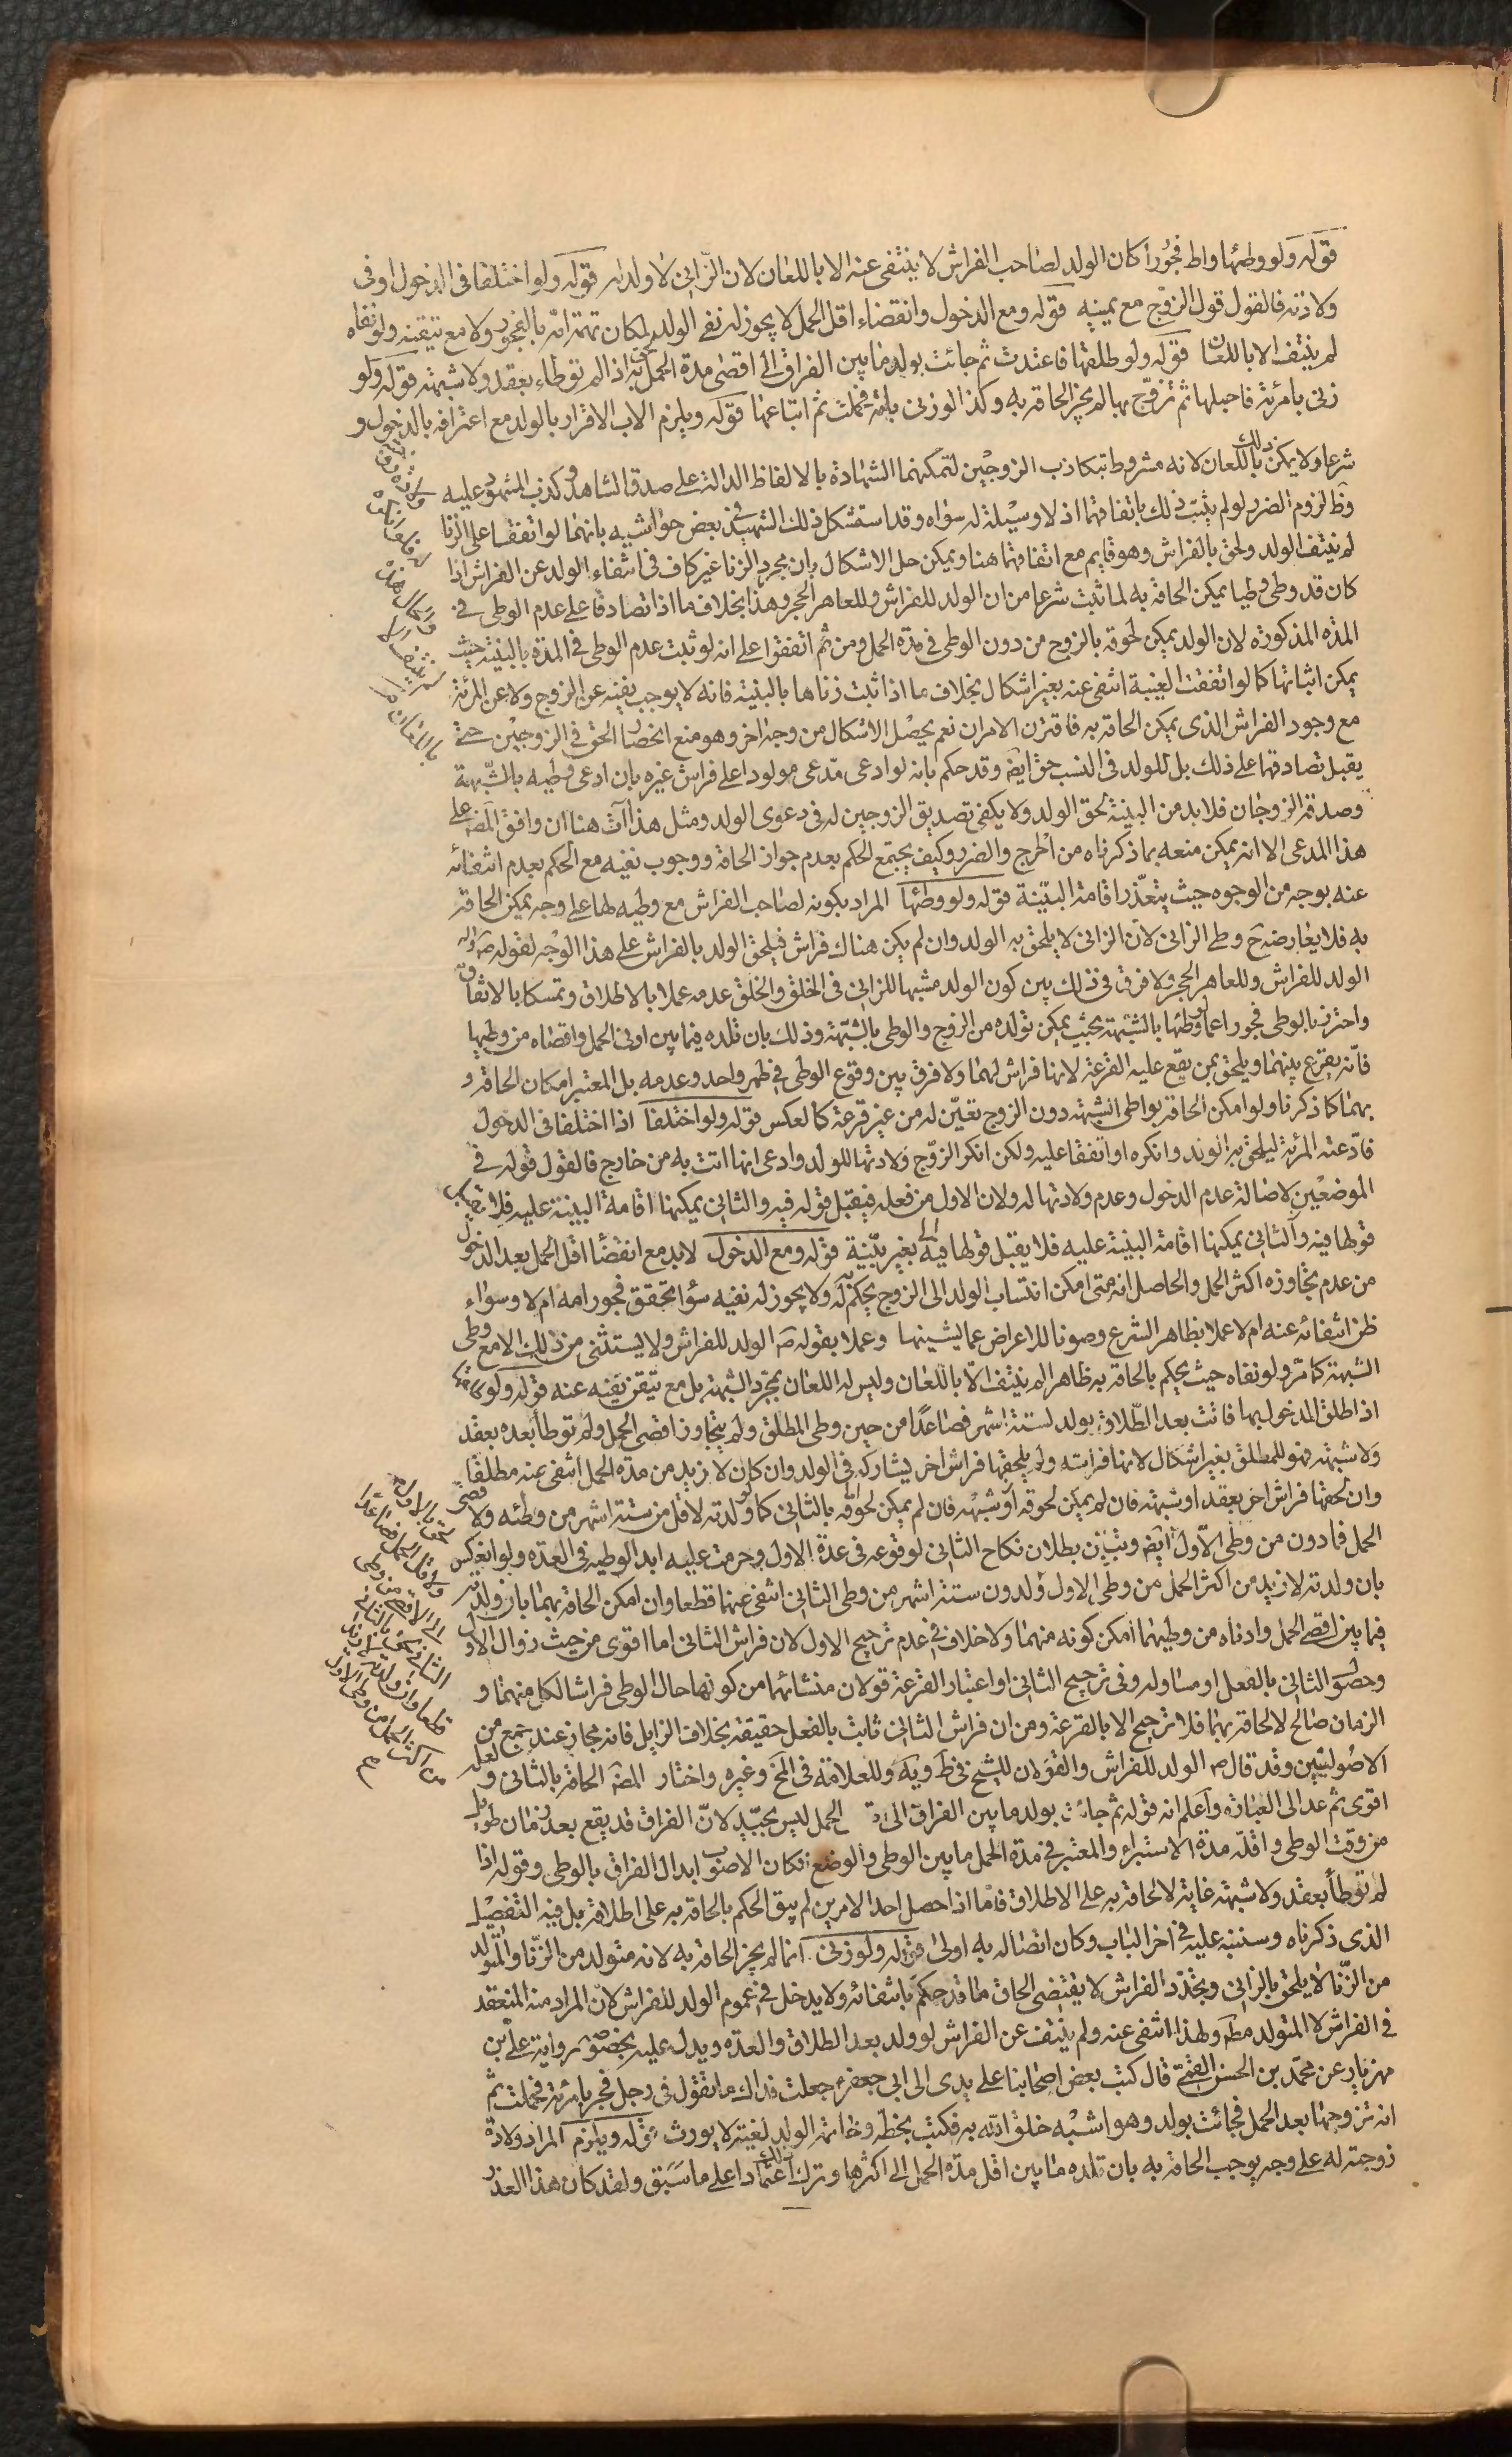 قوله ولو وطئها واطٍ فجورا كان الولد لصاحب الفراش لا ينتفى عنه الا باللعان لان الزّانى لا ولد له قوله ولو اختلفا فى الدخول او فى
ولادته فالقول قول الزوج مع يمينه قوله ومع الدخول وانقضاء اقل الحمل لا يجوز له نفى الولد لمكان تهمة امّه بالفجور ولا مع تيقنه ولو نفاه
لم ينتف الا باللعان قوله ولو طلقها فاعتدت ثم جائت بولد ما بين الفراق الى اقصى مدة الحمل لحق به اذا لم توطاء بعقد ولا شبهة قوله ولو
زنى بامرئة فاحبلها ثم تزوّج بها لم يجز الحاقه به وكذا لو زنى بامة فحملت ثم ابتاعها قوله ويلزم الاب الاقرار بالولد مع اعترافه بالدخول و
شرعا ولا يمكن ذلك باللعان لانه مشروط بتكاذب الزوجين لتمكنهما الشهادة بالالفاظ الدالة على صدق الشاهد وكذب المشهود عليه
وظ لزوم الضرر لو لم يثبت ذلك باتفاقهما اذ لا وسيلة له سواه وقد استشكل ذلك الشهيد فى بعض حواشيه بانهما لو اتفقا على الزنا
لم ينتف الولد ولحق بالفراش وهو قايم مع اتفاقهما هنا ويمكن حل الاشكال بان مجرد الزنا غير كاف فى انتفاء الولد عن الفراش اذا
كان قد وطى وطيا يمكن الحاقه به لما ثبت شرعا من ان الولد للفراش وللعاهر الحجر وهذا بخلاف ما اذا تصادقا على عدم الوطى فى
المدة المذكورة لان الولد يمكن لحوقه بالزوج من دون الوطى فى مدة الحمل ومن ثم اتفقوا على انه لو ثبت عدم الوطى فى المدة بالبينة حيث
يمكن اثباتها كما لو اتفقت الغيبة انتفى عنه بغير اشكال بخلاف ما اذا ثبت زناها بالبينة فانه لا يوجب نفيه عن الزوج ولا عن المرئة
مع وجود الفراش الذى يمكن الحاقه به فافترق الامران نعم يحصل الاشكال من وجه اخر وهو منع انحصار الحق فى الزوجين حتى
يقبل تصادقهما على ذلك بل للولد فى النسب حق ايض وقد حكم بانه لو ادعى مدّعى مولودا على فراش غيره بان ادعى وطيه بالشّبهة
وصدقه الزوجان فلا بد من البينة لحق الولد ولا يكفى تصديق الزوجين له فى دعوى الولد ومثل هذا آت هنا ان وافق المض على
هذا المدعى الا انه يمكن منعه بما ذكرناه من الحرج والضرر وكيف يجتمع الحكم بعدم جواز الحاقه ووجوب نفيه مع الحكم بعدم انتفائه
عنه بوجه من الوجوه حيث يتعذّر اقامة البيّنة قوله ولو وطئها المراد بكونه لصاحب الفراش مع وطيه لها على وجه يمكن الحاقه
به فلا يعارضه ح وطى الزانى لان الزانى لا يلحق به الولد وان لم يكن هناك فراش فيلحق الولد بالفراش على هذا الوجه لقوله ص واله
الولد للفراش وللعاهر الحجر ولا فرق فى ذلك بين كون الولد مشبها للزانى فى الخلق والخلق عدمه عملا بالاطلاق وتمسكا بالاتفاق
واحترز بالوطى فجورا عما لو وطئها بالشبهة بحيث يمكن تولده من الزوج والوطى بالشبهة وذلك بان تلده فيما بين اونى الحمل واقصاه من وطيها
فانّه يقرع بينهما ويلحق بمن يقع عليه القرعة لانها فراش لهما ولا فرق بين وقوع الوطى فى طهر واحد وعدمه بل المعتبر امكان الحاقه و
بهما كما ذكرنا ولو امكن الحاقه بواطى الشبهة دون الزوج تعيّن له من غير قرعة كالعكس قوله ولو اختلفا اذا اختلفا فى الدخول
فادّعته المرئة ليلحق به الولد وانكره او اتفقا عليه ولكن انكر الزوّج ولادتها للولد وادعى انها اتت به من خارج فالقول قوله فى
الموضعين لاصالة عدم الدخول وعدم ولادتها له ولان الاول من فعله فيقبل قوله فيه والثانى يمكنها اقامة البينة عليه فلا يقبل
قولها فيه والثانى يمكنها اقامة البينة عليه فلا يقبل قولها فيه بغير بيّنة قوله ومع الدخول لا بد مع انقضا اقل الحمل بعد الدخول
من عدم تجاوزه اكثر الحمل والحاصل انه متى امكن انتساب الولد الى الزوج يحكم له ولا يجوز له نفيه سوا تحقق فجور امه ام لا وسواء
ظن انتفائه عنه ام لا عملا بظاهر الشرع وصونا للاعراض عما يشينها وعملا بقوله ص الولد للفراش ولا يستثنى من ذلك الا مع وطى
الشبهة كما مرّ ولو نفاه حيث يحكم بالحاقه به ظاهرا لم ينتف الّا باللعان وليس له اللعان بمجرّد الشبهة بل مع تيقن نفيه عنه قوله ولو طلقها
اذا طلق المدخول بها فاتت بعد الطّلاق بولد لستة اشهر فصاعدًا من حين وطى المطلق ولم يتجاوز اقصى الحمل ولم توطأ بعده بعقد
ولا شبهة فهو للمطلق بغير اشكال لانها فراشه ولم يلحقها فراش اخر يشاركه فى الولد وان كان لازيد من مدة الحمل انتفى عنه مطلقا
وان لحقها فراش اخر بعقد او شبهة فان لم يمكن لحوقه او شبهة فان لم يمكن لحوقه بالثانى كما لو ولدته لاقل من ستة اشهر من وطئه ولا قصى
الحمل فما دون من وطى الاّول ايض وتبين بطلان نكاح الثانى لوقوعه فى عدة الاول وحرمت عليه ابدا لوطيه فى العدة ولو انعكس
بان ولدته لازيد من اكثر الحمل من وطى الاول ولدون ستة اشهر من وطى الثانى انتفى عنهما قطعا وان امكن الحاقه بهما بان ولدته
فيما بين اقصى الحمل وادناه من وطيهما امكن كونه منهما ولا خلاف فى عدم ترجيح الاول لان فراش الثانى اما اقوى من حيث زوال الاول
وحضو الثانى بالفعل او مساو له وفى ترجيح الثانى او اعتبار القرعة قولان منشائهما من كونها حال الوطى فراشا لكل منهما و
الزمان صالح لالحاقه بهما فلا ترجيح الا بالقرعة ومن ان فراش الثانى ثابت بالفعل حقيقة بخلاف الزايل فانه مجاز عند جمع من
الاصُوليّين وقد قال ص الولد للفراش والقولان للشيخ فى ط ويه وللعلامة فى المخ وغيره واختار المض الحاقه بالثانى ولعله
اقوى ثم عد الى العبارة واعلم انه قوله ثم جائت بولد ما بين الفراق الى الحمل ليس بجيّد لانّ الفراق قد يقع بعد زمان طويل
من وقت الوطى واقلّه مدة الاستبراء والمعتبر فى مدة الحمل ما بين الوطى والوضع فكان الاصوب ابدال الفراق بالوطى وقوله اذا
لم توطأ بعقد ولا شبهة غاية لالحاقه به على الاطلاق فامّا اذا حصل احد الامرين لم يبق الحكم بالحاقه به على اطلاقه بل فيه التفصيل
الذى ذكرناه وسننبّه عليه فى اخر الباب وكان اتصاله به اولى قوله ولو زنى انما لم يجز الحاقه به لانه متولد من الزّنا والمتولد
من الزّنا لا يلحق بالزانى وتجدّد الفراش لا يقتضى الحاق ما قد حكم بانتفائه ولا يدخل فى عموم الولد للفراش لانّ المراد منه المنعقد
فى الفراش لا المتولد مطم ولهذا انتفى عنه ولم ينتف عن الفراش لو ولد بعد الطلاق والعدة ويدل عليه بخصوصه رواية على بن
مهزيار عن محمّد بن الحسن القمّى قال كتب بعض اصحابنا على يدى الى ابى جعفر ع جعلت فداك ما تقول فى رجل فجر بامرئة فحملت ثم
انه تزوجها بعد الحمل فجائت بولد وهو اشبه خلق الله به فكتب بخطّه وخاتمه الولد لغيّة لا يورث قوله ويلزم المراد ولادة
زوجته له على وجه يوجب الحاقه به بان تلده ما بين اقل مدة الحمل الى اكثرها وترك ذلك اعتمادا على ما سبق ولقد كان هذا العذر